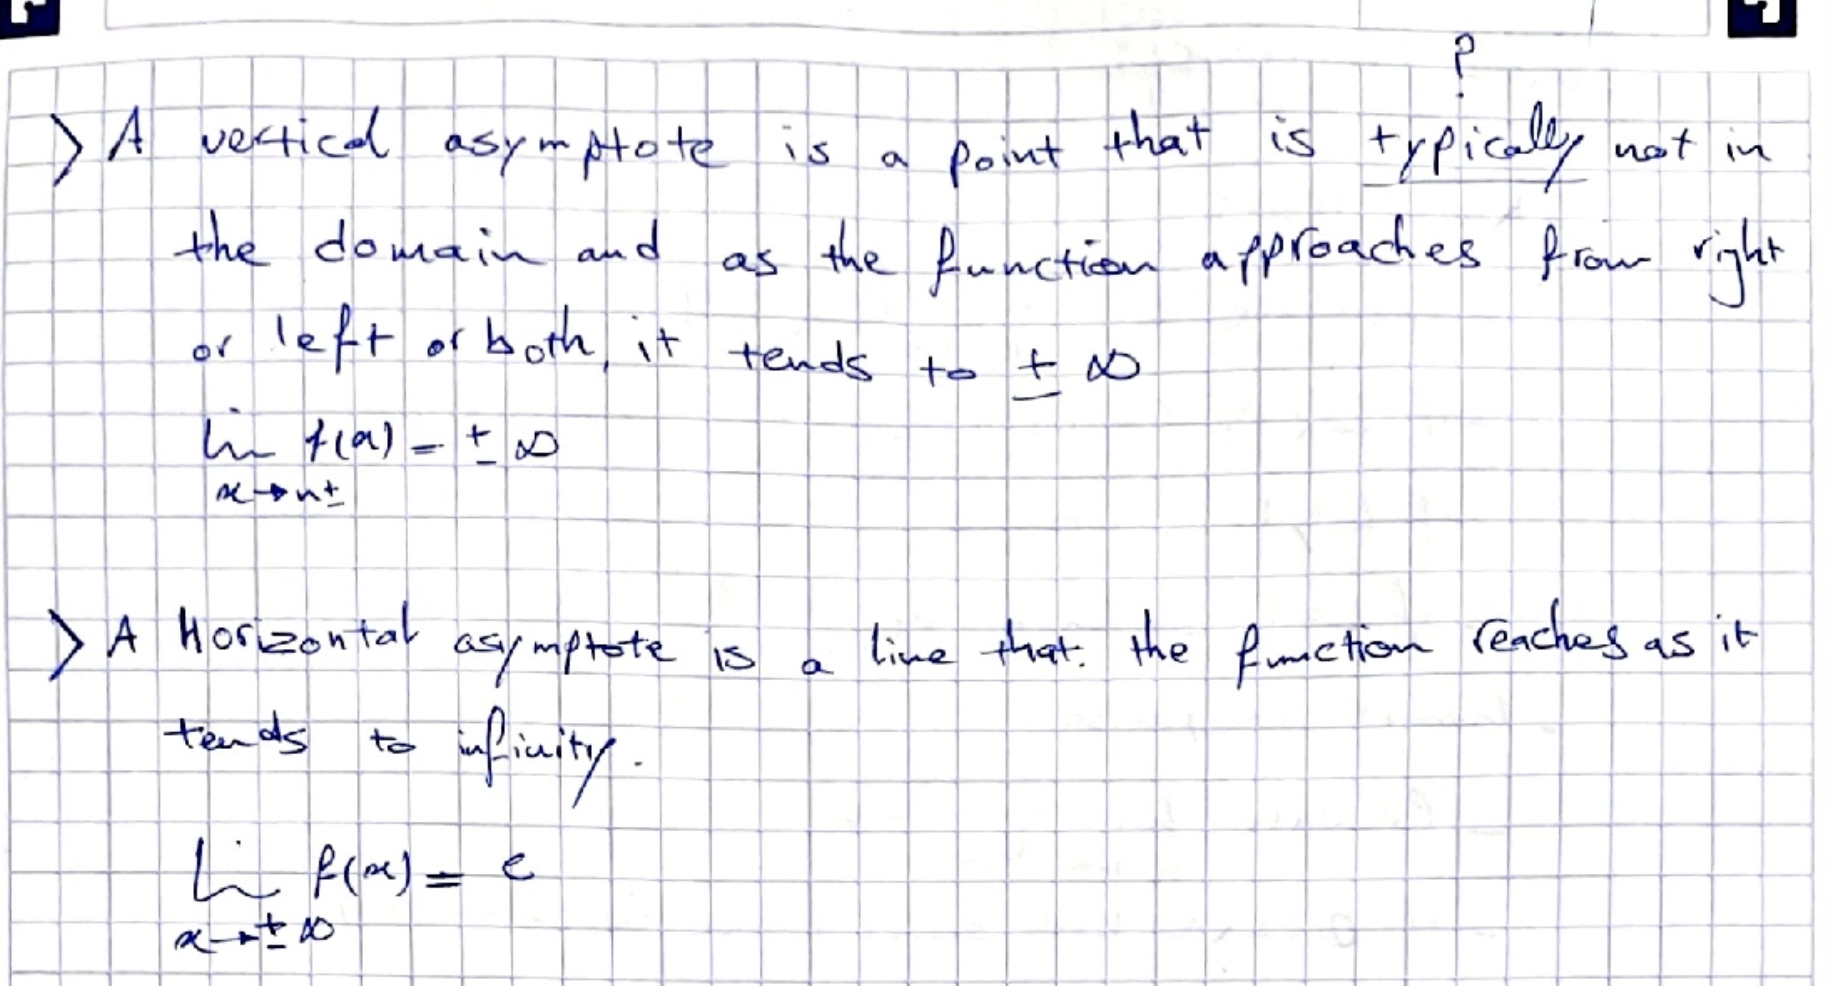 ?
> A vertical asymptote is a point that is typically not in
the domain and as the function approaches from right
or left or both, it tends to ± ∞
lim f(x) = ± ∞
x→n±
> A Horizontal asymptote is a line that the function reaches as it
tends to infinity.
Lim f(x) = c
x→±∞